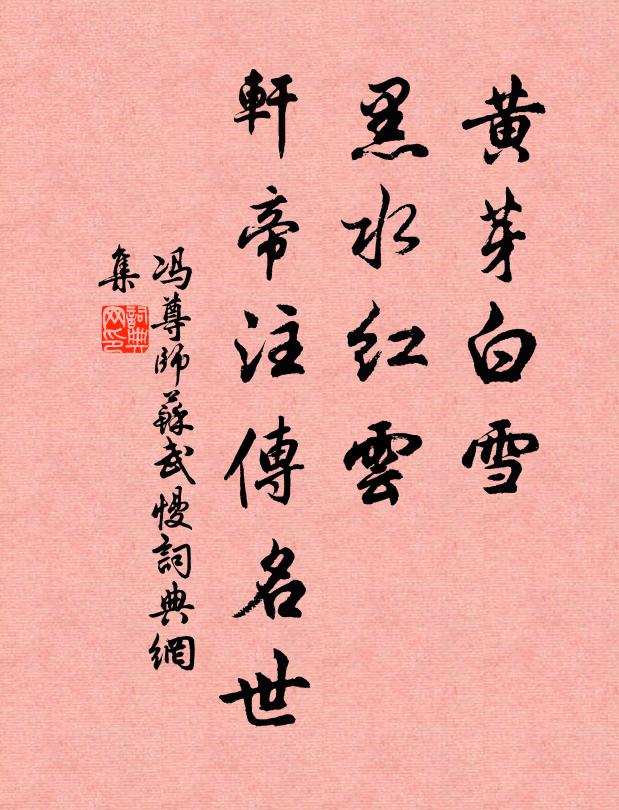 黃芽白雪
黑水紅雲
軒帝注傳名世
冯尊師蘇武慢詞典網
集
詞典
网印